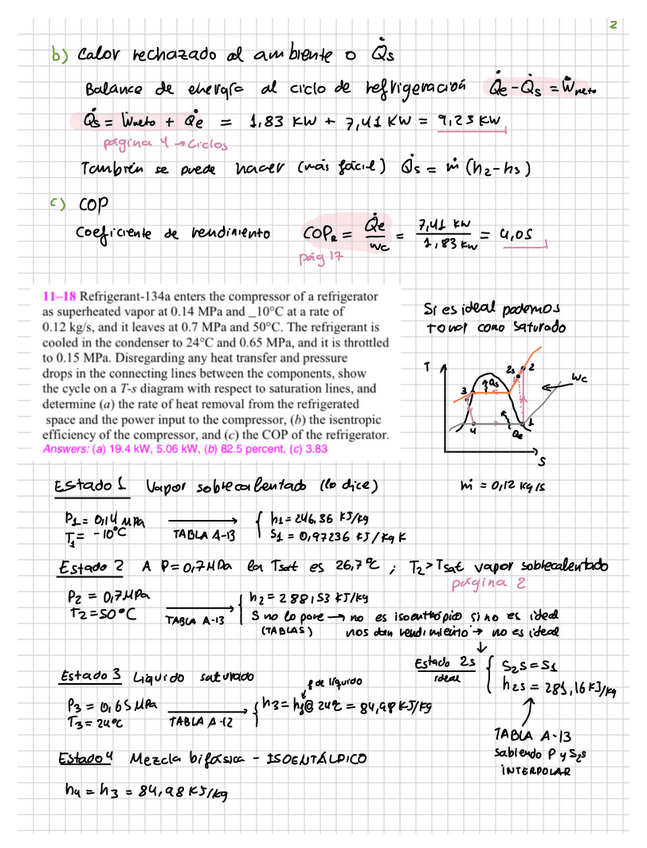 2
b) Calor rechazado al ambiente o Q̇s
Balance de energía al ciclo de refrigeración Q̇e - Q̇s = Ẇneto
Q̇s = Ẇneto + Q̇e = 1,83 KW + 7,41 KW = 9,23 KW
página 4 → Ciclos
También se puede hacer (más fácil) Q̇s = ṁ (h2-h3)
c) COP
Coeficiente de rendimiento COPR = Q̇e / Wc = 7,41 KW / 1,83 KW = 4,05
pág 17
11–18 Refrigerant-134a enters the compressor of a refrigerator
as superheated vapor at 0.14 MPa and _10°C at a rate of
0.12 kg/s, and it leaves at 0.7 MPa and 50°C. The refrigerant is
cooled in the condenser to 24°C and 0.65 MPa, and it is throttled
to 0.15 MPa. Disregarding any heat transfer and pressure
drops in the connecting lines between the components, show
the cycle on a T-s diagram with respect to saturation lines, and
determine (a) the rate of heat removal from the refrigerated
space and the power input to the compressor, (b) the isentropic
efficiency of the compressor, and (c) the COP of the refrigerator.
Answers: (a) 19.4 kW, 5.06 kW, (b) 82.5 percent, (c) 3.83
Si es ideal podemos
tomar como saturado
T
2s 2
Qs
Wc
3
4
Qe
1
S
Estado 1 Vapor sobrecalentado (lo dice)
ṁ = 0,12 kg/s
P1 = 0,14 MPa
T1 = -10°C
TABLA A-13
h1 = 246,36 KJ/kg
S1 = 0,97236 KJ/kg K
Estado 2 A P=0,7MPa la Tsat es 26,7°C ; T2 > Tsat vapor sobrecalentado
página 2
P2 = 0,7MPa
T2 = 50°C
TABLA A-13
h2 = 288,53 KJ/kg
S no lo pone → no es isoentrópico si no es ideal
(TABLAS) nos dan rendimiento → no es ideal
Estado 2s
ideal
S2s = S1
h2s = 281,16 KJ/kg
TABLA A-13
sabiendo P y S2s
INTERPOLAR
Estado 3 Líquido saturado
P3 = 0,65 MPa
T3 = 24°C
TABLA A-12
f de líquido
h3 = hf@ 24°C = 84,98 KJ/kg
Estado 4 Mezcla bifásica - ISOENTÁLPICO
h4 = h3 = 84,98 KJ/kg